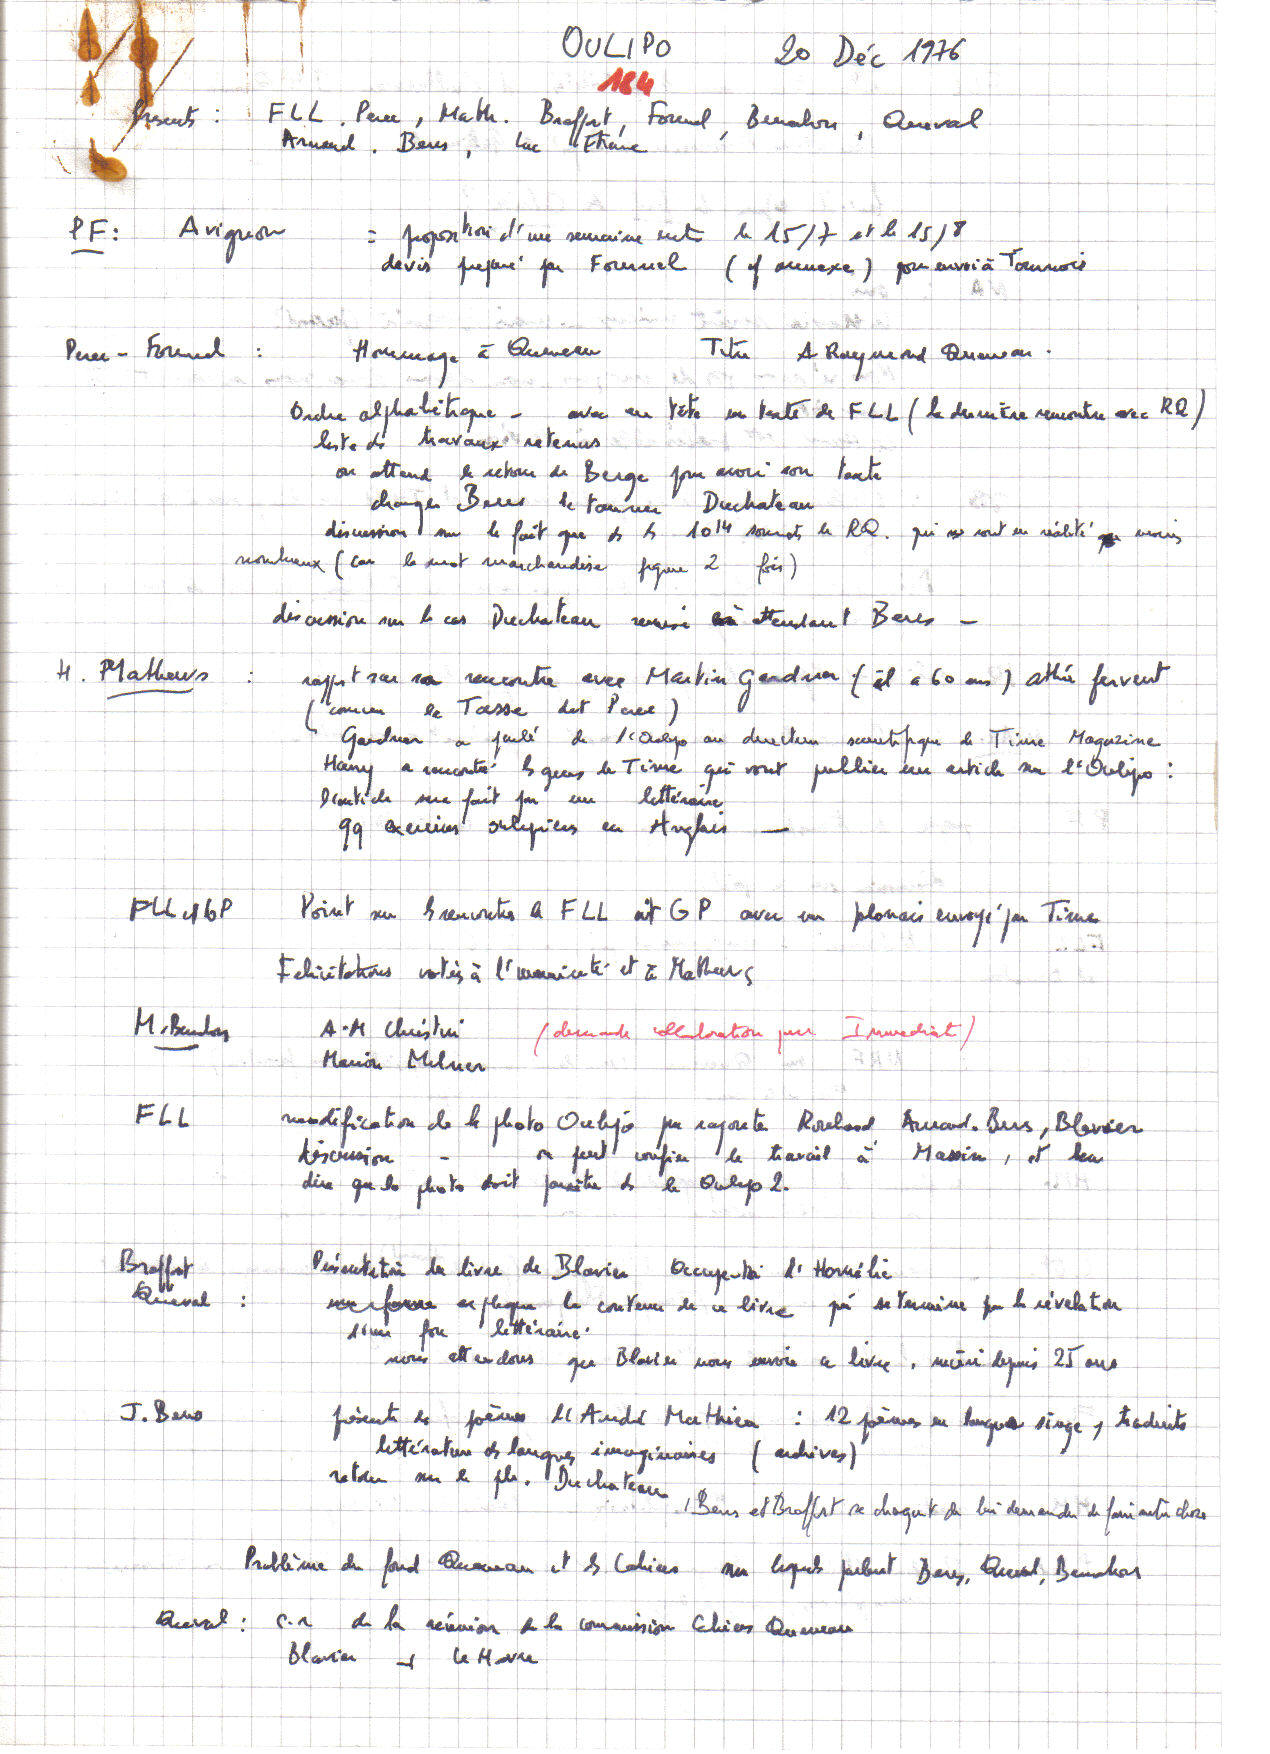 OULIPO 20 Déc 1976
184
Présents : FLL, Perec, Math. Braffort, Fournel, Benabou, Queval
Arnaud, Bens, Luc Etienne
PF : Avignon = proposition d'une semaine entre le 15/7 et le 15/8
devis préparé par Fournel (cf annexe) pour envoi à Tournois
Perec - Fournel : Hommage à Queneau Titre A Raymond Queneau.
Ordre alphabétique - avec en tête un texte de FLL (la dernière rencontre avec RQ)
liste des travaux retenus
on attend le retour de Berge pour avoir son texte
charger Bens de Duchateau
discussion sur le fait que ds les 10 14 sonnets de RQ. qui sont en réalité moins
nombreux (car le mot marchandise figure 2 fois)
discussion sur le cas Duchateau remise en attendant Bens -
H. Mathews : rapport sur sa rencontre avec Martin Gardner (il a 60 ans) athée fervent
(comme le Tasse dit Perec)
Gardner a parlé de l'Oulipo au directeur scientifique de Time Magazine
Harry a rencontré les gens de Time qui vont publier un article sur l'Oulipo :
L'article sera fait par un littéraire
qq exercices oulipiens en Anglais -
FLL et GP Point sur les rencontres de FLL et GP avec un polonais envoyé par Time
Félicitations votées à l'unanimité et à Mathews
M. Benabou A-M Christin (demande collaboration pour Immédiat)
Marion Milner
FLL modification de la photo Oulipo pour rajouter Roubaud Arnaud. Bens, Blavier
discussion - on peut confier le travail à Massin, et leur
dire que la photo doit paraître ds le Oulipo 2.
Braffort Présentation du livre de Blavier Occupe-toi d'Homélie
Queval : explique le contenu de ce livre qui se termine par la révélation
d'un fou littéraire.
nous attendons que Blavier nous envoie ce livre, depuis 25 ans
J. Bens présente des poèmes d'André Mathieu : 12 poèmes en langue singe, traduits
littérature ds langues imaginaires (archives)
retour sur le pb. Duchateau, Bens et Braffort se chargent de lui demander de faire autre chose
Problème du fond Queneau et les Cahiers sur lesquels parlent Bens, Queval, Benabou
Queval : C.R de la réunion de la commission Cahiers Queneau
Blavier → Le Havre